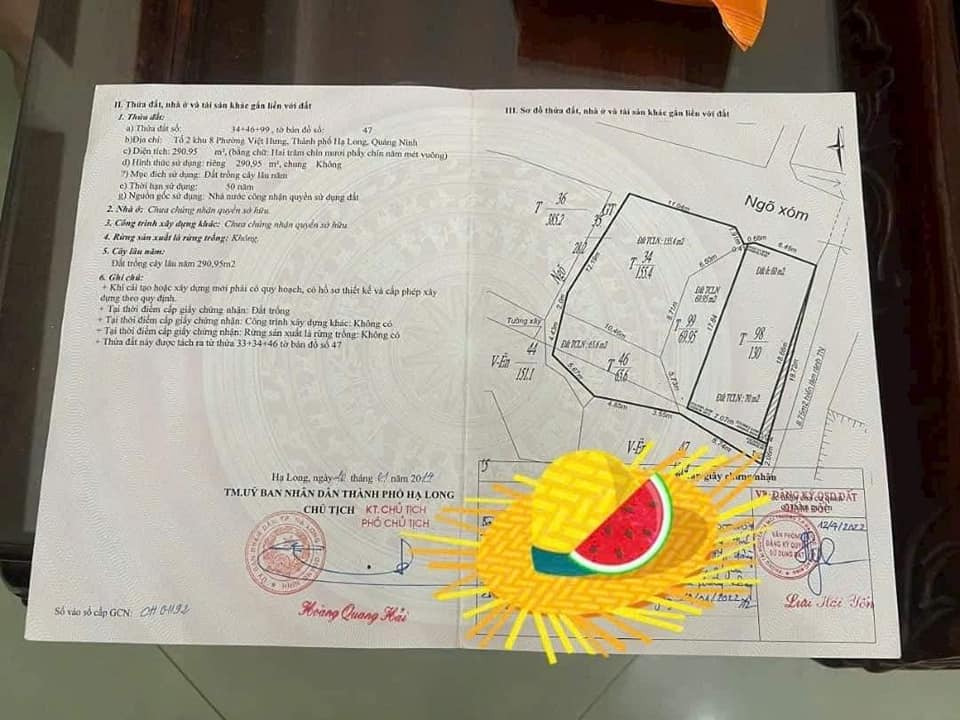 II. Thửa đất, nhà ở và tài sản khác gắn liền với đất
1. Thửa đất:
a) Thửa đất số: 34+46+99 , tờ bản đồ số: 47
b)Địa chỉ: Tổ 2 khu 8 Phường Việt Hưng, Thành phố Hạ Long, Quảng Ninh
c) Diện tích: 290.95 m², (bằng chữ: Hai trăm chín mươi phẩy chín năm mét vuông)
d) Hình thức sử dụng: riêng 290,95 m², chung Không
?) Mục đích sử dụng: Đất trồng cây lâu năm
e) Thời hạn sử dụng: 50 năm
g) Nguồn gốc sử dụng: Nhà nước công nhận quyền sử dụng đất
2. Nhà ở: Chưa chứng nhận quyền sở hữu.
3. Công trình xây dựng khác: Chưa chứng nhận quyền sở hữu
4. Rừng sản xuất là rừng trồng: Không.
5. Cây lâu năm:
Đất trồng cây lâu năm 290,95m2
6. Ghi chú:
+ Khi cải tạo hoặc xây dựng mới phải có quy hoạch, có hồ sơ thiết kế và cấp phép xây
dựng theo quy định.
+ Tại thời điểm cấp giấy chứng nhận: Đất trồng
+ Tại thời điểm cấp giấy chứng nhận: Công trình xây dựng khác: Không có
+ Tại thời điểm cấp giấy chứng nhận: Rừng sản xuất là rừng trồng: Không có
+ Thửa đất này được tách ra từ thửa 33+34+46 tờ bản đồ số 47
Hạ Long, ngày tháng năm
TM.UỶ BAN NHÂN DÂN THÀNH PHỐ HẠ LONG
CHỦ TỊCH KT.CHỦ TỊCH
PHÓ CHỦ TỊCH
Hoàng Quang Hải
Số vào sổ cấp GCN: CH 0492
III. Sơ đồ thửa đất, nhà ở và tài sản khác gắn liền với đất
Ngõ xóm
T 36
385.2
17.04m
0.68m
6.46m
Đất TCLN: 155.4 m2
T 34
155.4
12.19m
Ngõ
6.50m
Đất ở: 60 m2
Đất TCLN
69.95 m2
8.71m
17.84
T 99
69.95
T 98
130
18.66m
19.72m
Tường xây
4.43m
10.46m
Đất TCLN: 65.6 m2
T 46
65.6
V-Ến 44
151.1
5.67m
5.73m
Đất TCLN: 70 m2
7.07m
4.85m
3.55m
8.74m
2.00m
V-Ến
giấy chứng nhận
VP. ĐĂNG KÝ QSD ĐẤT
12/4/2022
VĂN PHÒNG
ĐĂNG KÝ QUYỀN
SỬ DỤNG ĐẤT
Lưu Hải Yến